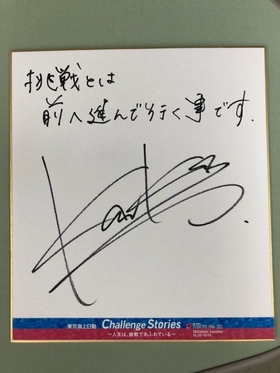 挑戦とは
前へ進んで行く事です.
東京海上日動 Challenge Stories
〜人生は、挑戦であふれている〜
TOKYO FM